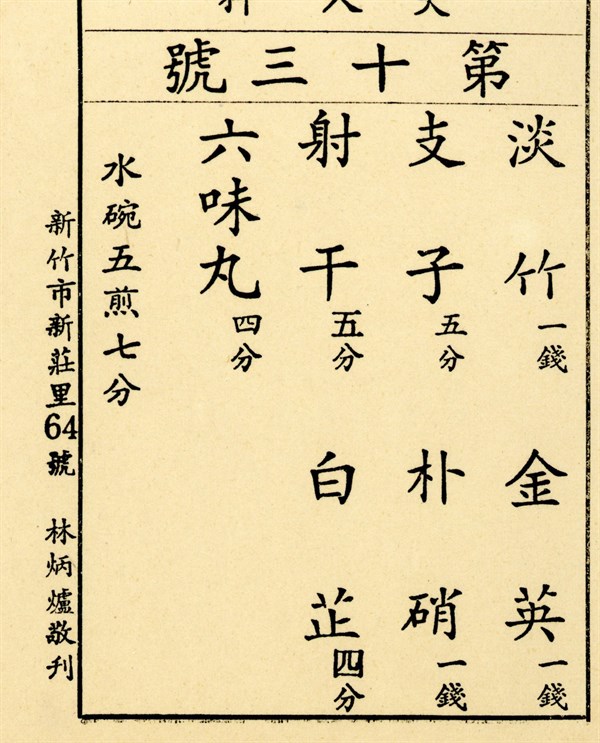 第十三號
淡竹一錢 金英一錢
支子五分 朴硝一錢
射干五分 白芷四分
六味丸四分
水碗五煎七分
新竹市新莊里64號 林炳爐敬刊